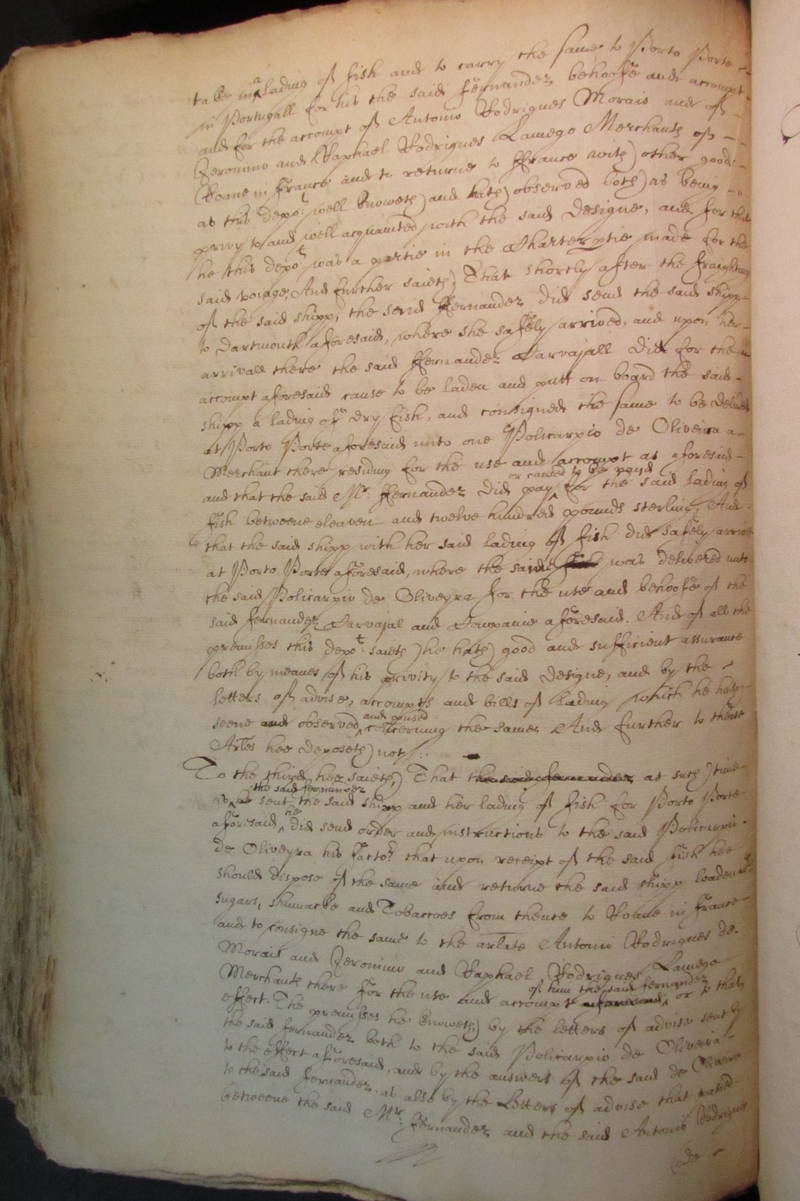 take in a lading of fish and to carry the same to Porto Porte
in Portugall for his the said Fernandez behoofe and accompt
and for the accompt of Antonio Rodrigues Morais and of
Jeronimo and Raphael Rodrigues Lamego Merchants of
Roane in France and to returne to ffrance with other goods
as this depot well knoweth and hath observed both as being
privy to and well acquainted with the said designe, and for that
he this depot was a partie in the Charter partie made for the
said voiage, And further saieth That shortly after the fraighting
of the said shipp, the said ffernandez did send the said shipp
to Dartmouth aforesaid, where she safely arrived, and upon her
arrivall there the said ffernandez Carvajall did for the
accompt aforesaid cause to be laden and putt on board the said
shipp a lading of dry fish, and consigned the same to be delivered
at Porto Porte aforesaid unto one Policarpio de Oliveira a
Merchant there residing for the use and accompt as aforesaid
and that the said Mr ffernandez did pay or caused to be payd for the said lading of
fish betweene eleaven and twelve hundred pounds sterling, And
that the said shipp with her said lading of fish did safely arrive
at Porto Porte aforesaid, where the same was delivered unto
the said Policarpio de Oliveyra for the use and behoofe of the
said fernandez Carvajal and Companie aforesaid. And of all the
premisses this depot saieth he hath good and sufficient assurance
both by meanes of his privity to the said designe, and by the
letters of advise, accompts and bills of lading which he hath
seene and observed and perused concerning the same. And further to these
Arles hee deposeth not
To the third hee saieth That the said fernandez at such time
as the said fernandez sent the said shipp and her lading of fish for Porto Porte
aforesaid, he did send order and instructions to the said Policarpio
de Oliveyra his factor that upon receipt of the said fish hee
should dispose of the same and returne the said shipp loaden with
sugars, shumacke and Tobaccoes from thence to Roane in france
and to consigne the same to the arlate Antonio Rodrigues de
Morais and Jeronimo and Raphael Rodrigues Lamego
Merchants there for the use and accompt of him the said fernandez or to that
effect. The premisses he knoweth by the letters of advise sent by
the said fernandez both to the said Policarpio de Oliveira
to the effect aforesaid, and by the answers of the said de Oliveira
to the said fernandez, as also by the letters of advise that passed
betweene the said Mr. ffernandez and the said Antonio Rodrigues
de